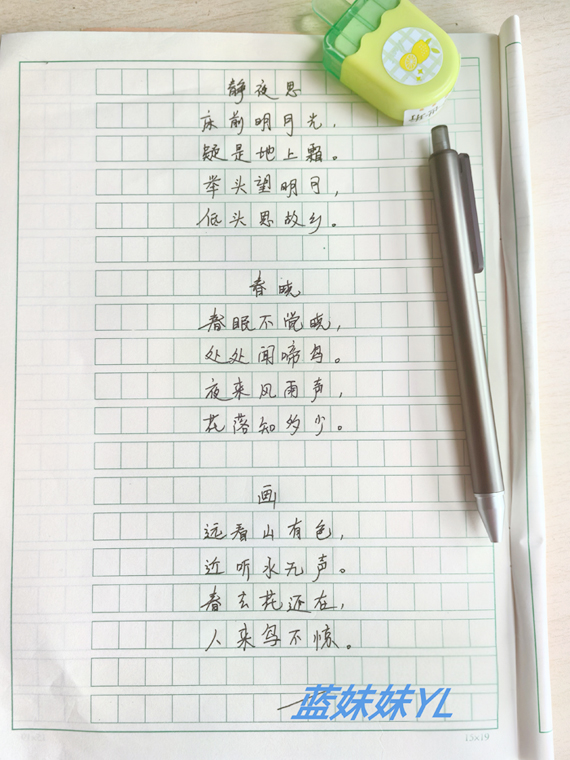 静夜思
床前明月光，
疑是地上颗。
举头望明月，
低头思故乡。
春晓
春眠不觉晓，
处处闻啼鸟。
夜来风雨声，
花落知多少。
画
远看山有色，
近听水无声。
春去花还在，
人来鸟不惊。
蓝妹妹YL
15×19